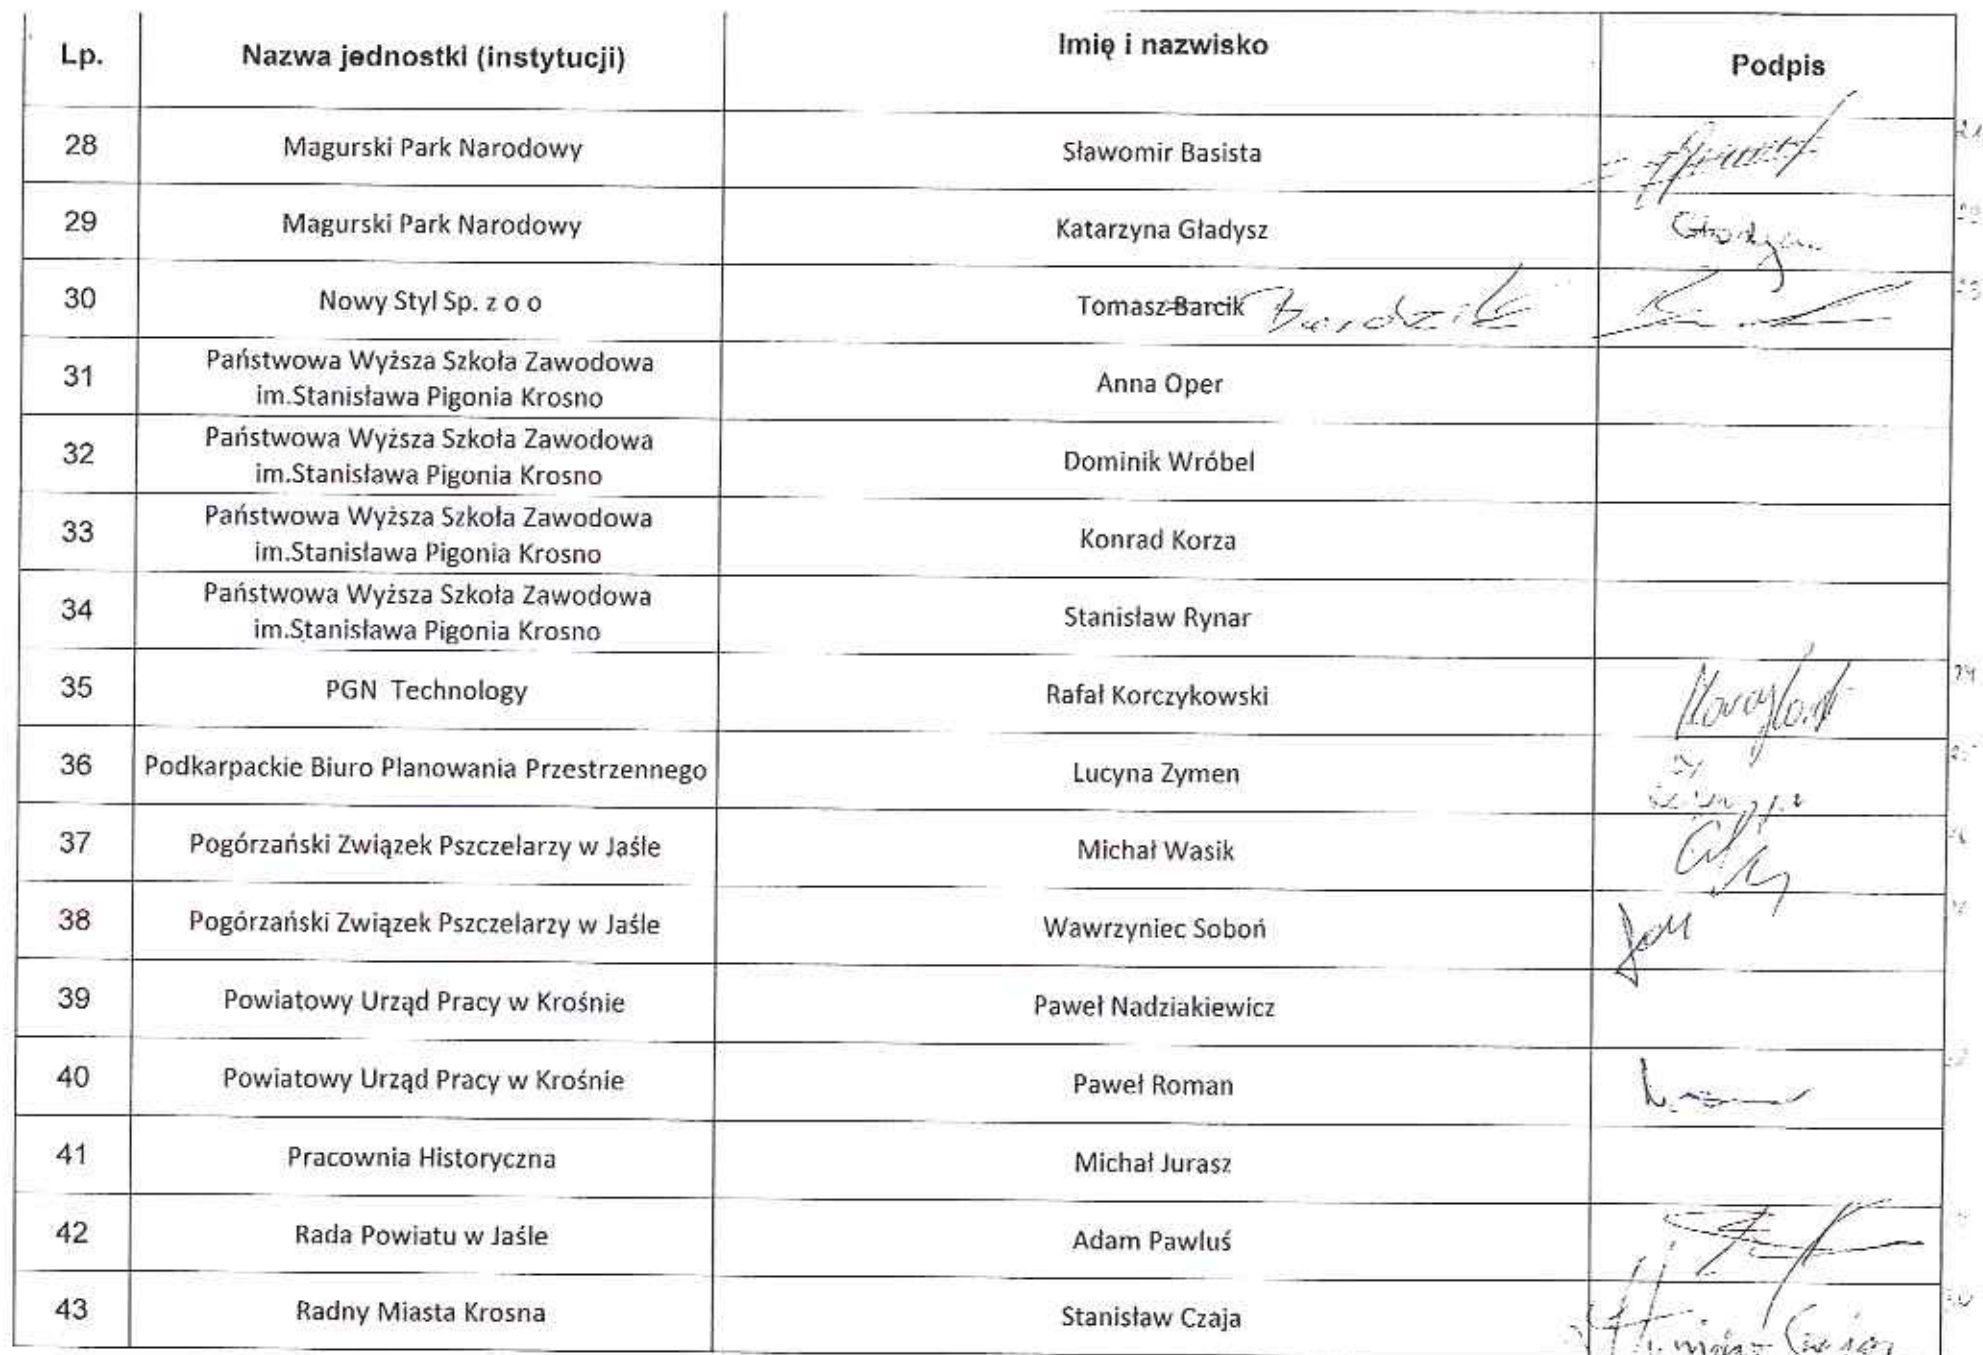 Lp. Nazwa jednostki (instytucji) Imię i nazwisko Podpis
28 Magurski Park Narodowy Sławomir Basista
29 Magurski Park Narodowy Katarzyna Gładysz
30 Nowy Styl Sp. z o o Tomasz Barcik Bardzik
31 Państwowa Wyższa Szkoła Zawodowa
im.Stanisława Pigonia Krosno Anna Oper
32 Państwowa Wyższa Szkoła Zawodowa
im.Stanisława Pigonia Krosno Dominik Wróbel
33 Państwowa Wyższa Szkoła Zawodowa
im.Stanisława Pigonia Krosno Konrad Korza
34 Państwowa Wyższa Szkoła Zawodowa
im.Stanisława Pigonia Krosno Stanisław Rynar
35 PGN Technology Rafał Korczykowski
36 Podkarpackie Biuro Planowania Przestrzennego Lucyna Zymen
37 Pogórzański Związek Pszczelarzy w Jaśle Michał Wasik
38 Pogórzański Związek Pszczelarzy w Jaśle Wawrzyniec Soboń
39 Powiatowy Urząd Pracy w Krośnie Paweł Nadziakiewicz
40 Powiatowy Urząd Pracy w Krośnie Paweł Roman
41 Pracownia Historyczna Michał Jurasz
42 Rada Powiatu w Jaśle Adam Pawluś
43 Radny Miasta Krosna Stanisław Czaja